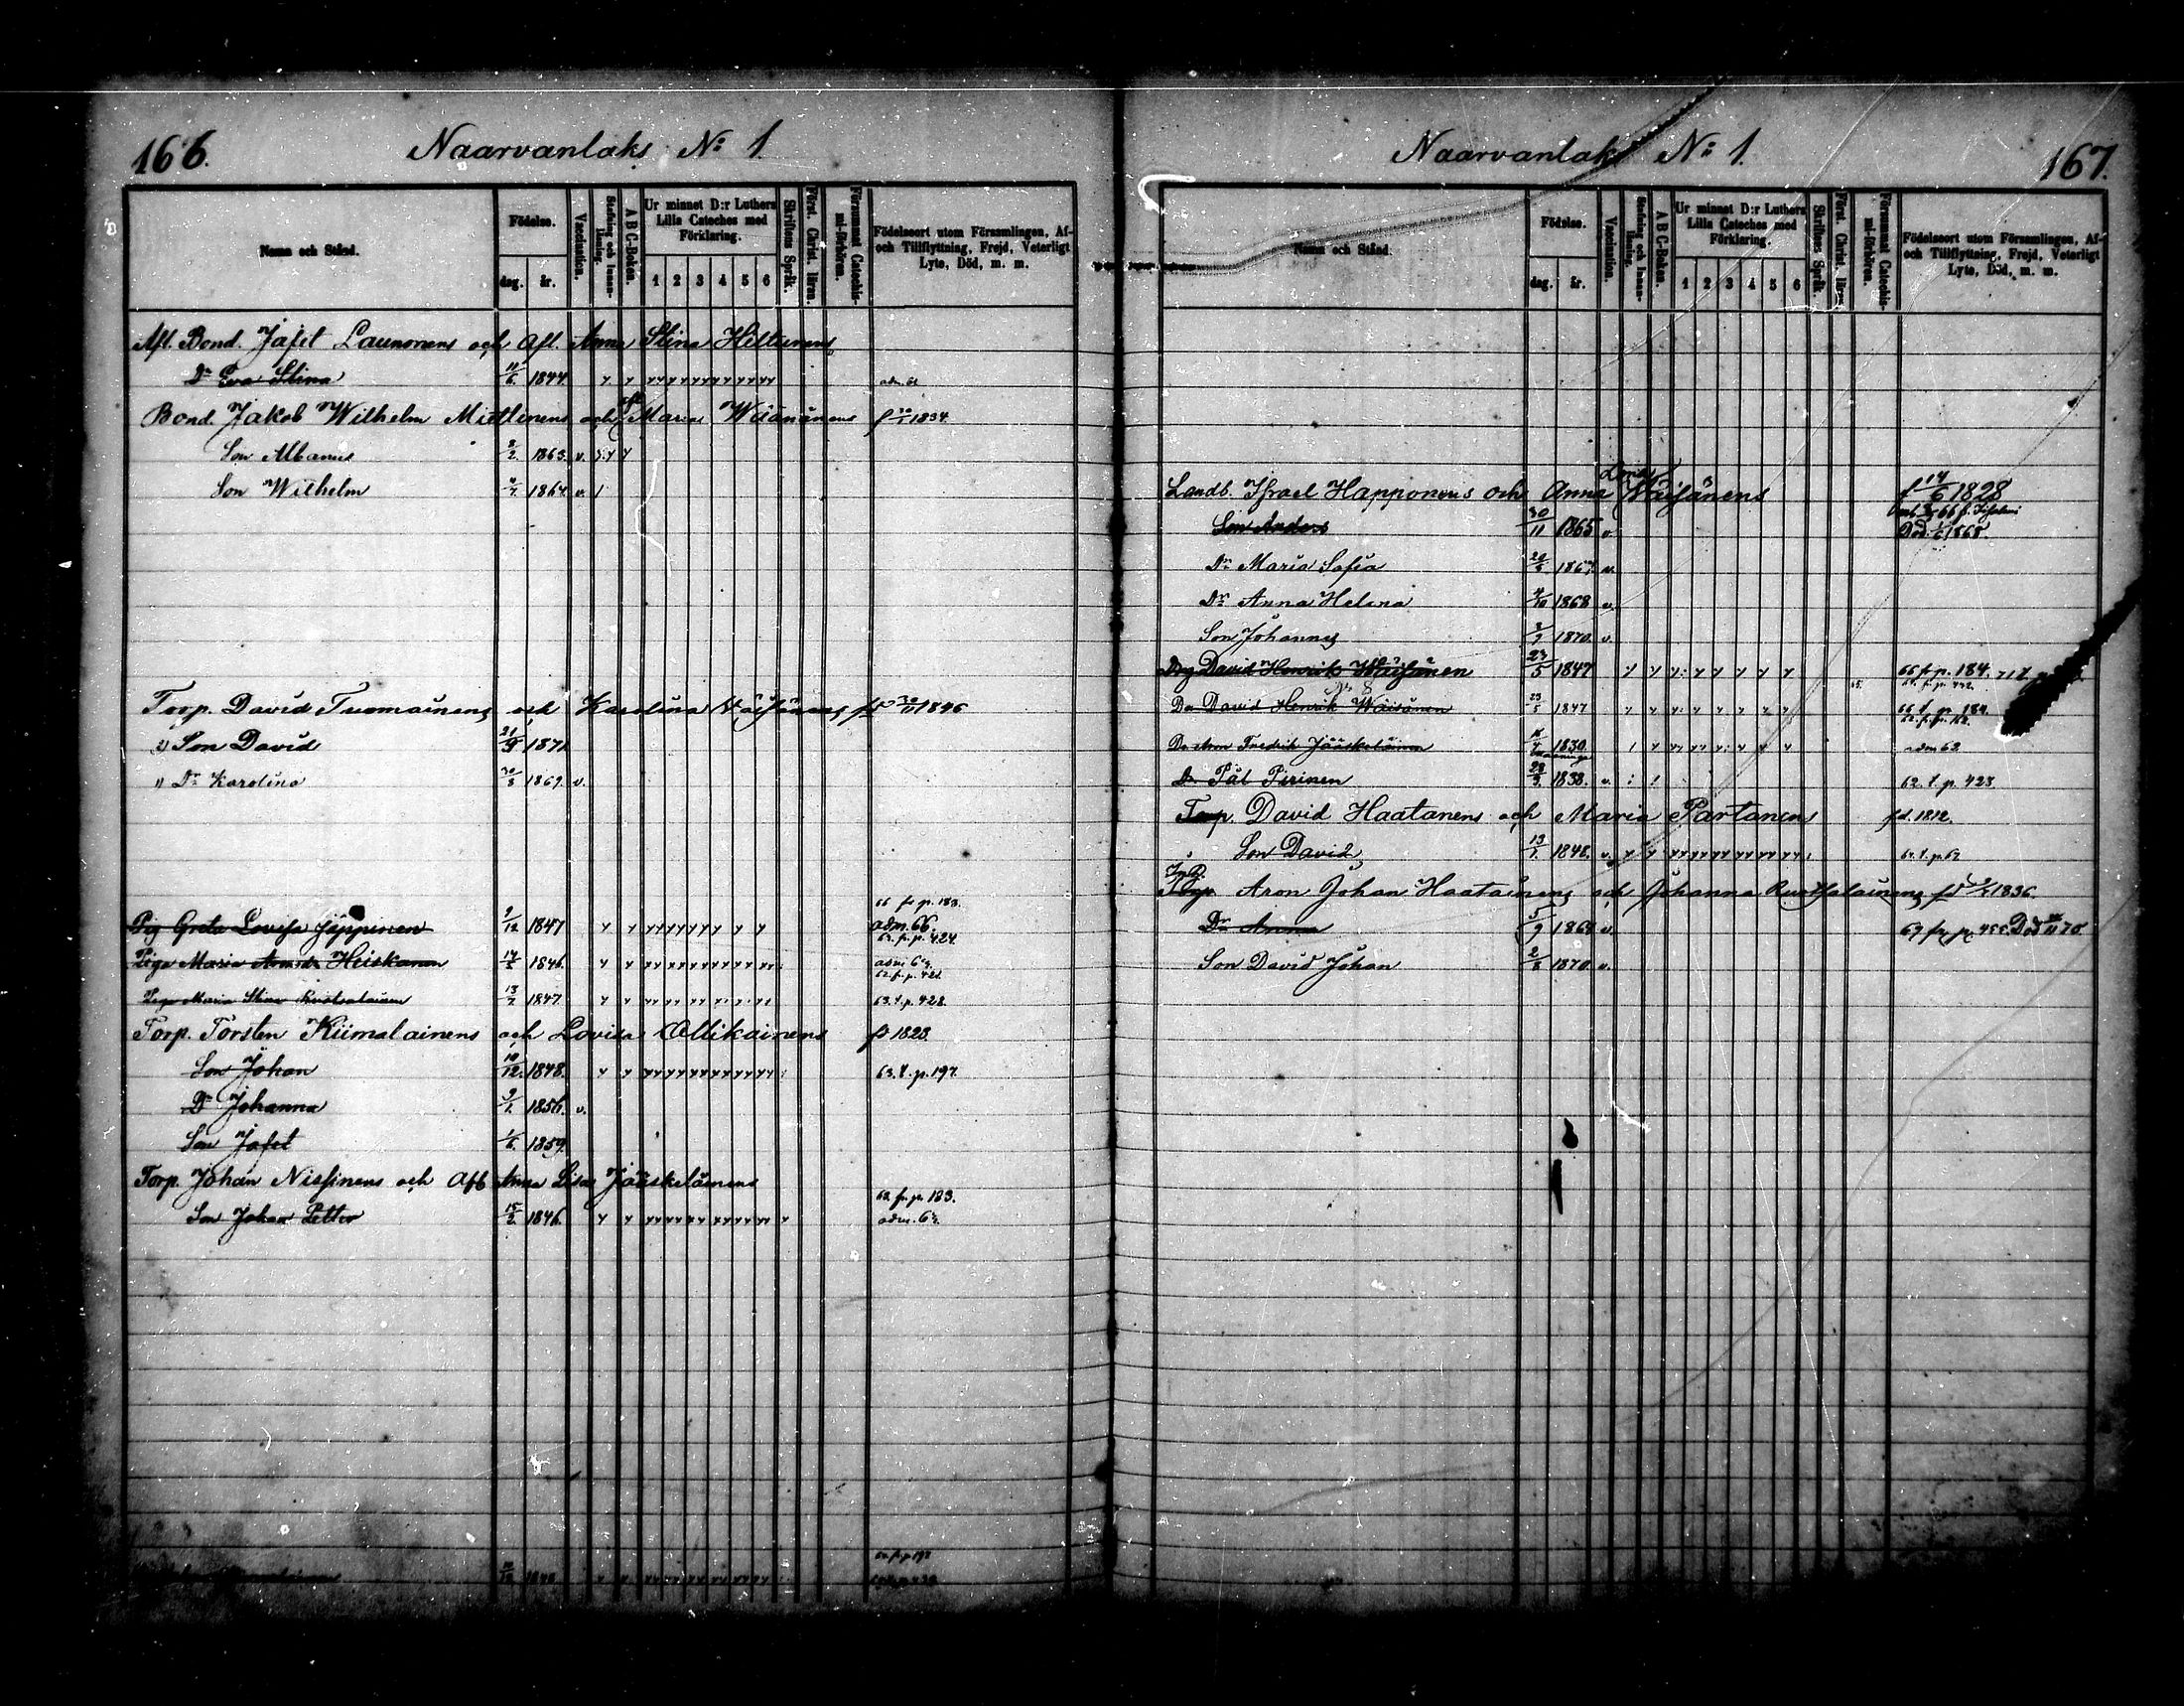 166.
Naarvanlaks No 1.
Namn och Stånd.
Födelse.
dag.
år.
Vaccination.
Stafning och Innanläsning.
A B C-Boken.
Ur minnet D:r Luthers Lilla Cateches med Förklaring.
1 2 3 4 5 6
Skriftens Språk.
Först. Christ. lären.
Försummat Catechismi-förhören.
Födelseort utom Församlingen, Af- och Tillflyttning, Frejd, Veterligt Lyte, Död, m. m.
Afl. Bond. Jafet Launonens och Afl. Anna Stina Hiltunens
Dr Eva Stina 11/6 1844
Bond. Jakob Wilhelm Miettinens och Maria Wäänänens f 1834
Son Albanus 8/2 1863 v.
Son Wilhelm 1864 v.
Torp. David Tuomainens och Karolina Väisänens fd 1846
2) Son David 21/9 1871
1) Dr Karolina 30/8 1869. v.
66 fr p. 183.
Pig Greta Lovisa Jäppinen 9/12 1847 adm. 66.
62. fr. p. 424.
Piga Maria Heiskanen 14/5 1846.
62. fr. p. 421.
Piga Maria Stina Ruotsalainen 13/7 1847. 63. t. p. 428.
Torp. Torsten Kiimalainens och Lovisa Ollikainens fd 1823.
Son Johan 10/12. 1848. 63. t. p. 197.
Dr Johanna 9/1. 1856. v.
Son Jafet 1/6. 1859.
Torp. Johan Nissinens och Afl Anna Lisa Jääskeläinens
62 fr. p. 183.
Son Johan Petter 15/2. 1846.
167.
Naarvanlaks No 1.
Namn och Stånd.
Födelse.
dag.
år.
Vaccination.
Stafning och Innanläsning.
A B C-Boken.
Ur minnet D:r Luthers Lilla Cateches med Förklaring.
1 2 3 4 5 6
Skriftens Språk.
Först. Christ. lären.
Försummat Catechismi-förhören.
Födelseort utom Församlingen, Af- och Tillflyttning, Frejd, Veterligt Lyte, Död, m. m.
Landb. Israel Happonens och Anna Lovisa Wäisänens f 14/6 1828
Son Anders 30/11 1865 v. Död 1868.
Dr Maria Sofia 1867 v.
Dr Anna Helena 4/10 1868 v.
Son Johannes 1870. v.
Drg David Henrik Wäisänen 23/5 1847 66 fr p. 184.
Do David Henrik Wäisänen 23/5 1847 66 t. p. 184.
Do Fredrik Jääskeläinen 1830. adm 62
Do Pål Pirinen 28/3 1838. v. 62. t. p. 423
Torp. David Haatanens och Maria Partanens fd. 1812.
Son David 13/1. 1848. v.
Aron Johan Haatainens och Johanna Ruotsalainens fd 1836.
Dr Anna 5/9 1869 v. Död 70.
Son David Johan 2/8 1870. v.